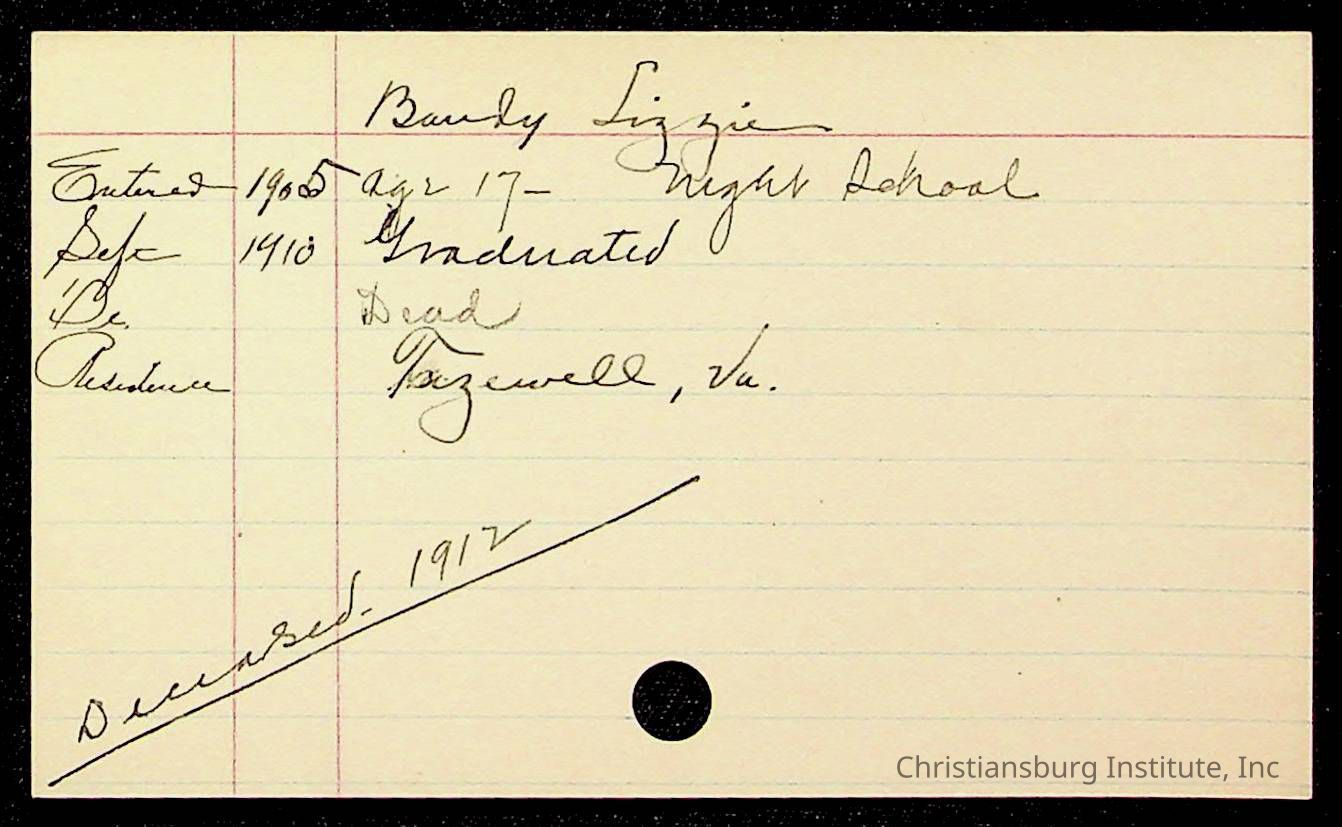 Bandy Lizzie
Entered 1905 age 17- Night School
Left 1910 Graduated
Oc. Dead
Residence Tazewell, Va.
Deceased. 1912
Christiansburg Institute, Inc